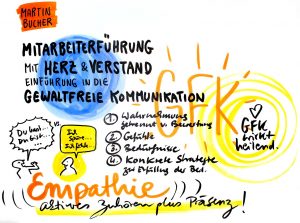 MARTIN
BUCHER
MITARBEITERFÜHRUNG
MIT HERZ & VERSTAND
EINFÜHRUNG IN DIE
GEWALTFREIE KOMMUNIKATION
GFK
1 Wahrnehmung
getrennt v. Bewertung
2 Gefühle
3 Bedürfnisse
4 Konkrete Strategie
zur Erfüllung der Bed.
Du hast...
Du bist...
vs.
Ich
Ich
GFK
wirkt
heilend.
Empathie
aktives Zuhören plus Präsenz!